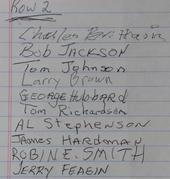 Row 2
Charles
Bob JACKSON
Tom Johnson
Larry Brown
GEORGE Hubbard
Tom Richardson
AL Stephenson
JAMES HARdmAn
ROBIN E. SMITH
JERRY FEAGIN